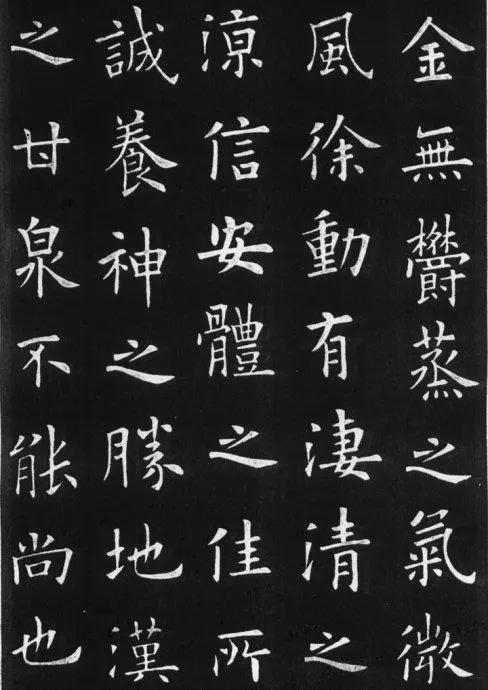 金無鬱蒸之氣微
風徐動有淒清之
涼信安體之佳所
誠養神之勝地漢
之甘泉不能尚也